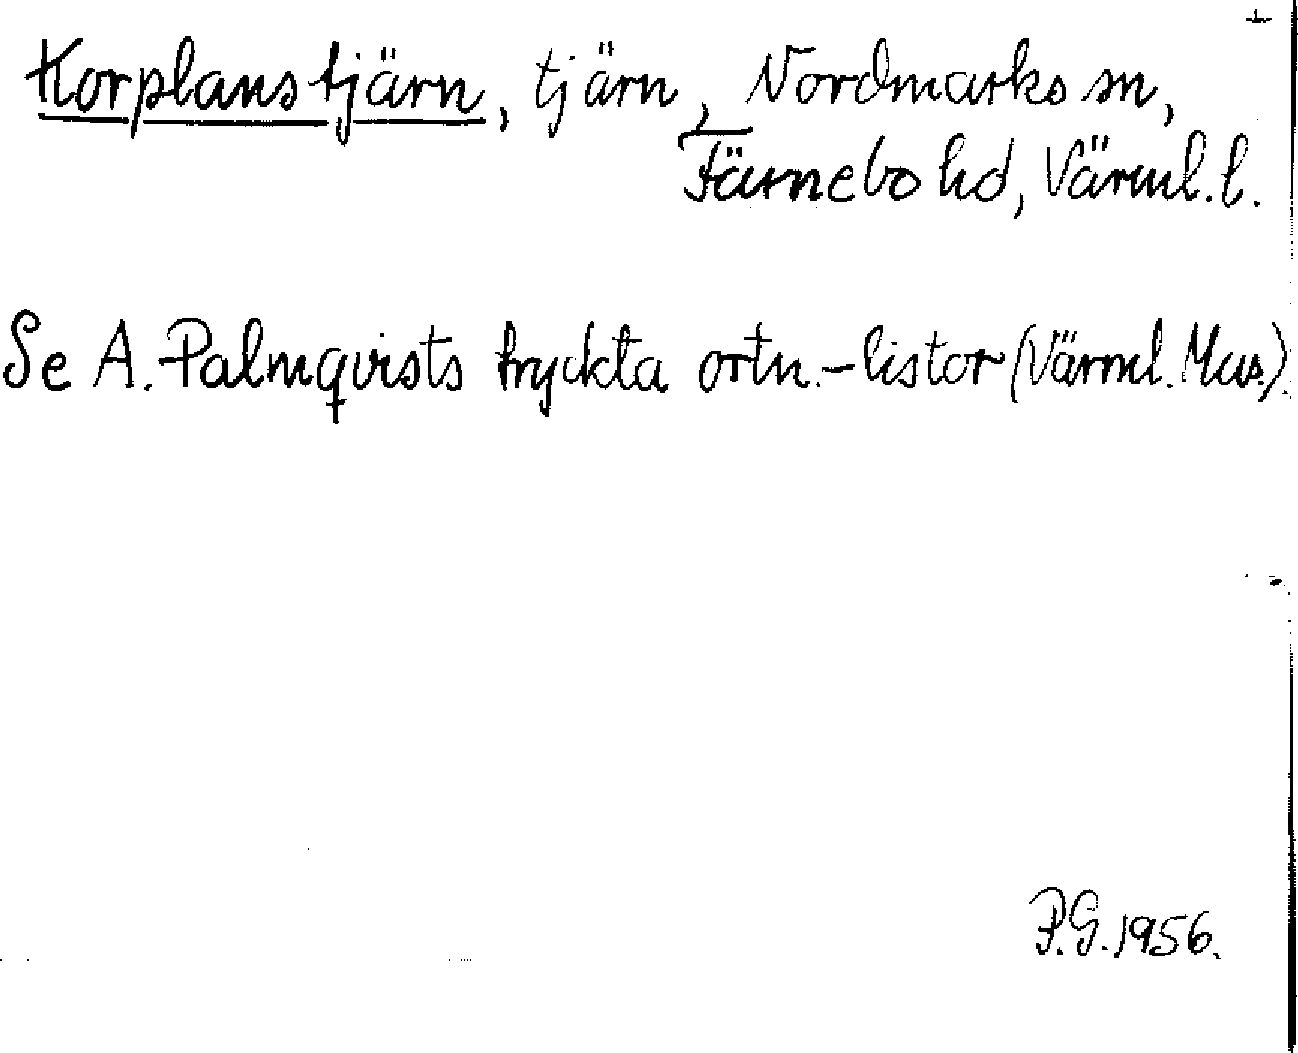 Korplanstjärn, tjärn, Nordmarks sn,
Färnebo hd, Värml. l.
Se A. Palmqvists tryckta ortn.-listor (Värml. Mus.).
P.G. 1956.